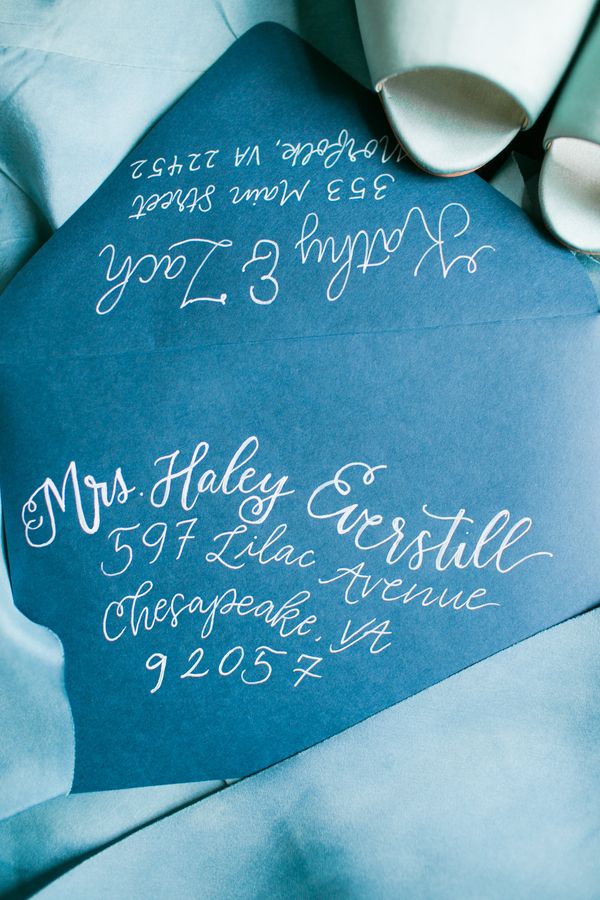 Kathy & Zach
353 Main Street
Norfolk, VA 22452
Mrs. Haley Everstill
597 Lilac Avenue
Chesapeake, VA
92057